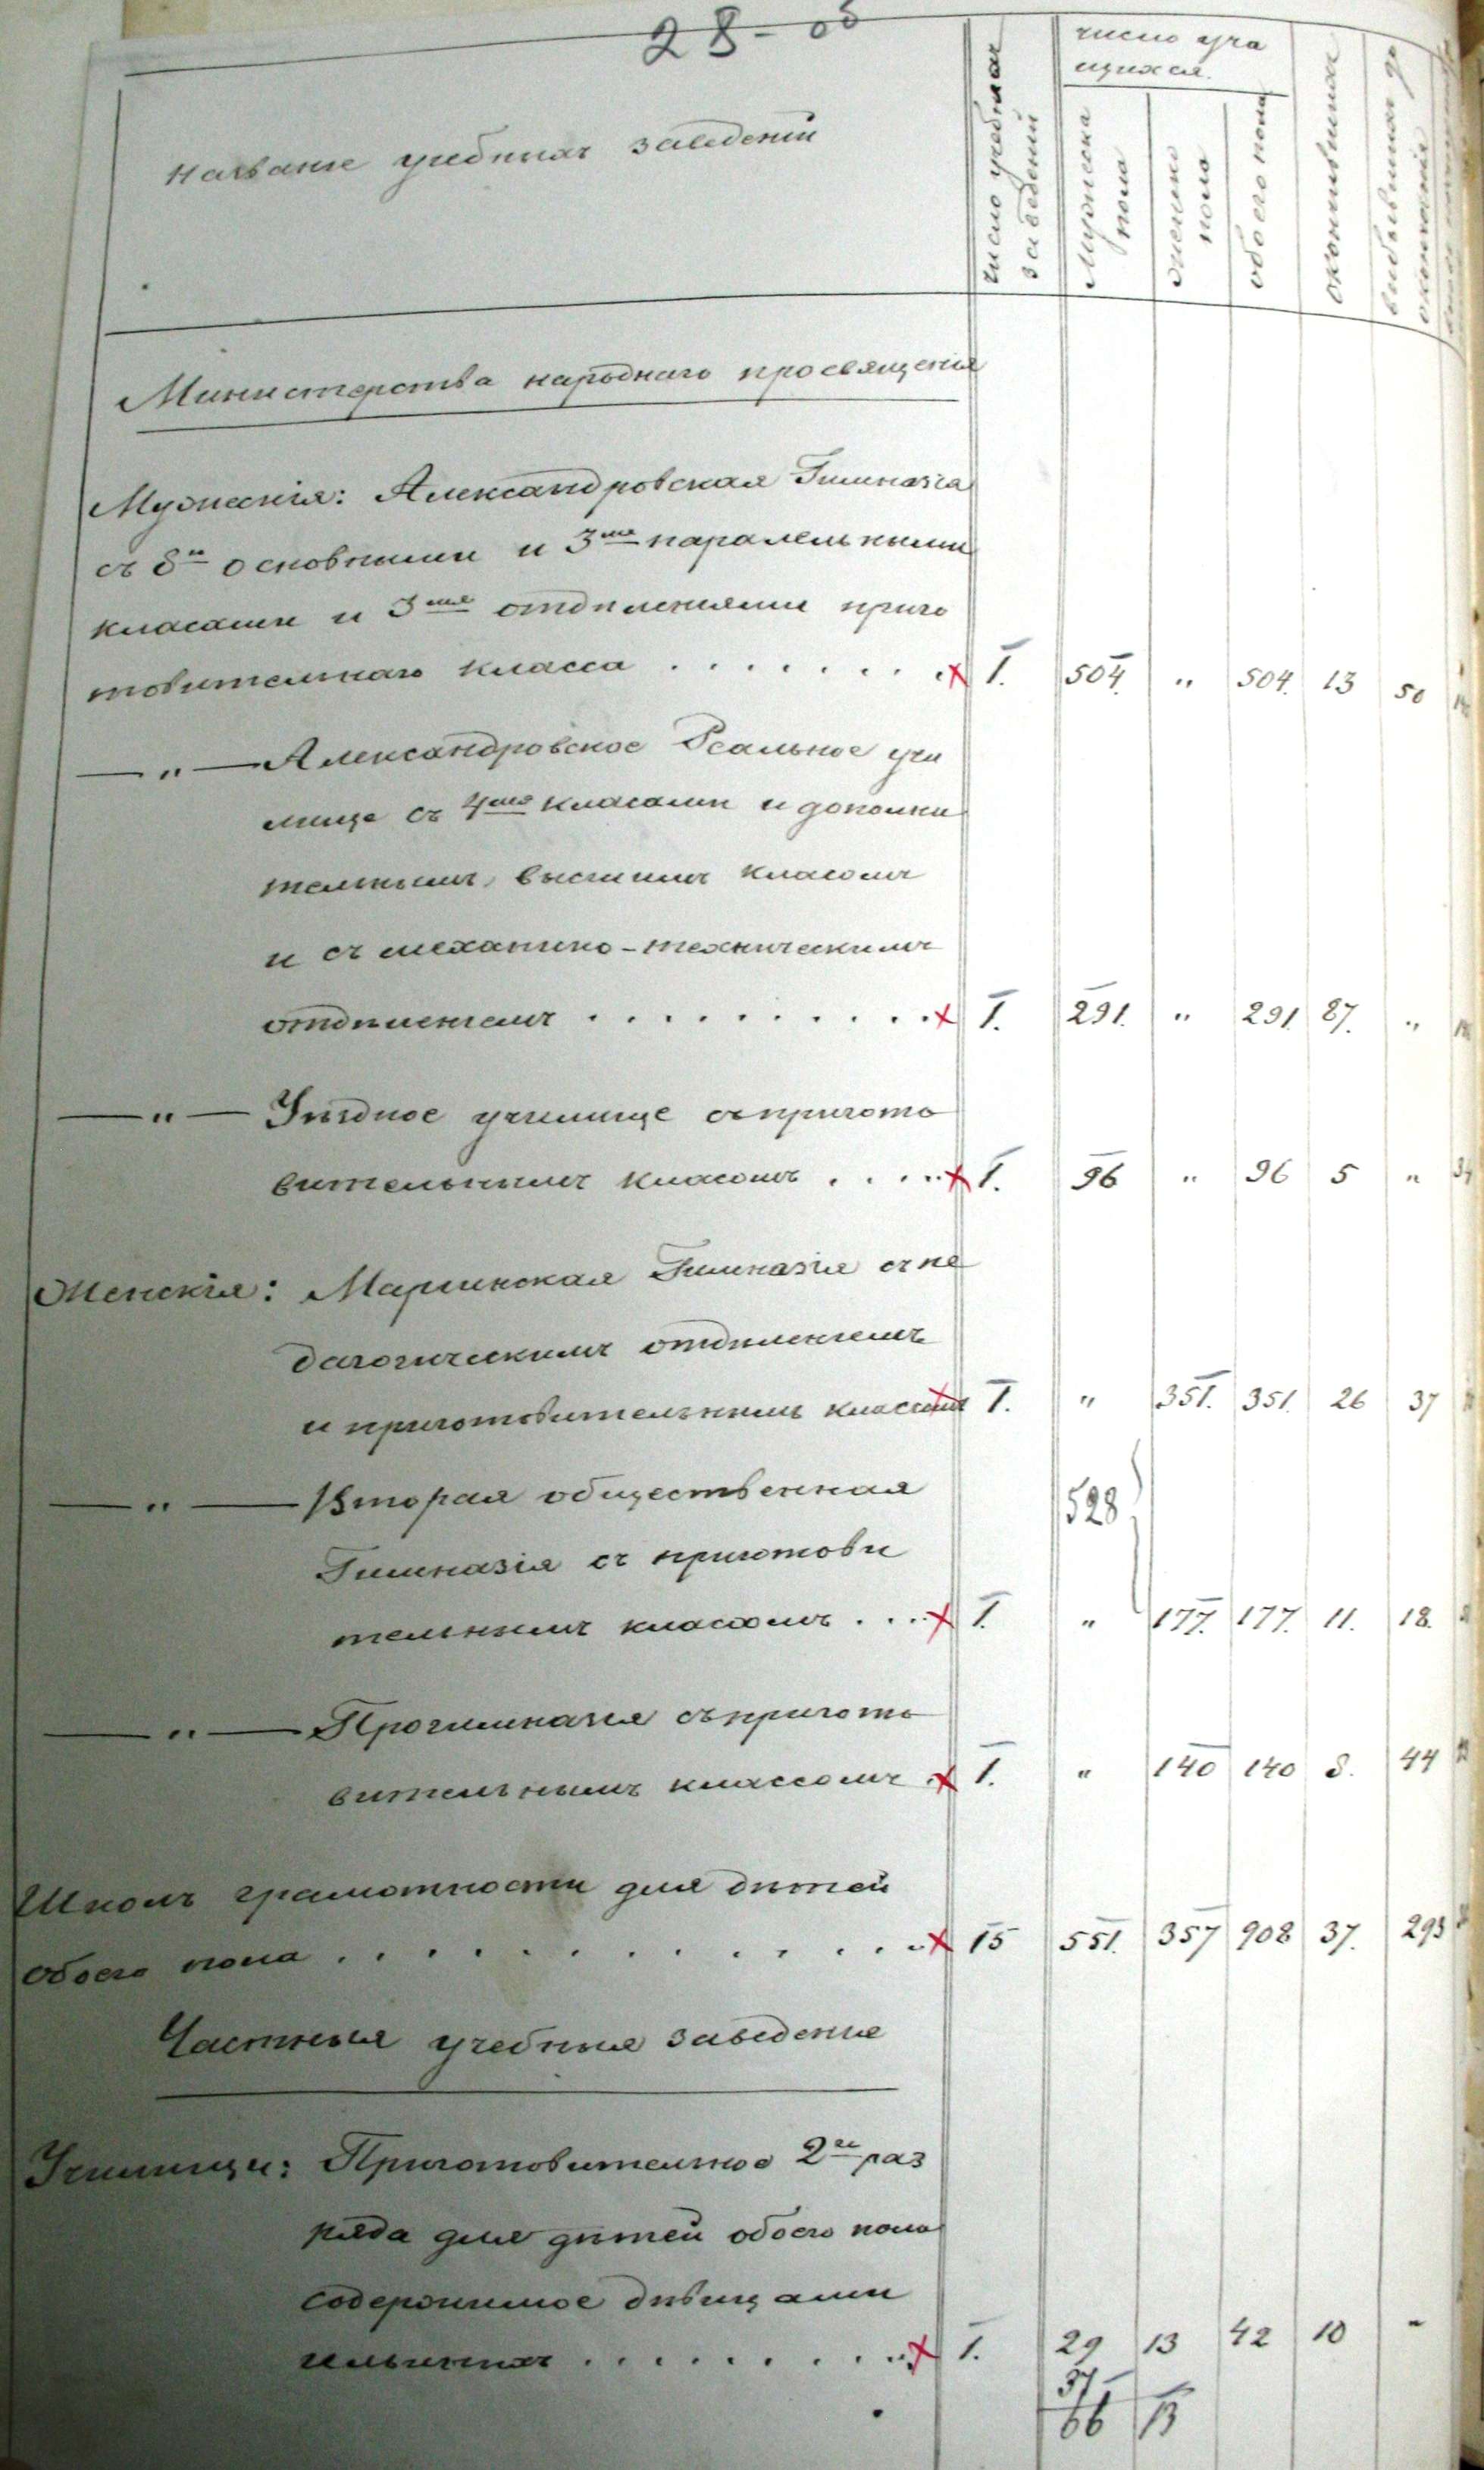 28-
Названіе учебныхъ заведеній
число учебныхъ
заведеній
число уча
щихся.
Мужескa
пола
женско
пола
обоего пола
окончившихъ
Министерства народнаго просвященія
Мужескія: Александровская Гимназіа
съ 8ю основными и 3мя паралельными
класами и 3мя отдѣленіями приго
товительнаго класса . . . . . . . . 1. 504. „ 504. 13 50
— „ — Александровское Реальное учи
лище съ класами и дополни
тельнымъ, высшимъ класомъ
и съ механико-техническимъ
отдѣленіемъ . . . . . . . . . . 1. 291. „ 291 27. „
— „ — Уѣздное училище съ пригото
вительнымъ класомъ . . . . 1. 96 „ 96 5 „
Женскія: Маріинская Гимназія съ пе
дагогическимъ отдѣленіемъ
и приготовительнымъ класомъ 1. „ 351. 351. 26 37
— „ — Вторая общественная
528
Гимназія съ приготови
тельнымъ класомъ . . . 1. „ 177. 177. 11. 18.
— „ — Прогимназія съ пригото
вительнымъ классомъ 1. „ 140 140 8. 44
Школъ грамотности для дѣтей
обоего пола . . . . . . . . . . . . 15 551. 357 908 37. 293
Частныя учебныя заведенія
Училищи: Приготовительное 2го раз
ряда для дѣтей обоего пола
содержимое дѣвицами
. . . . . . . . . 1. 29 13 42 10 -
37
66 13